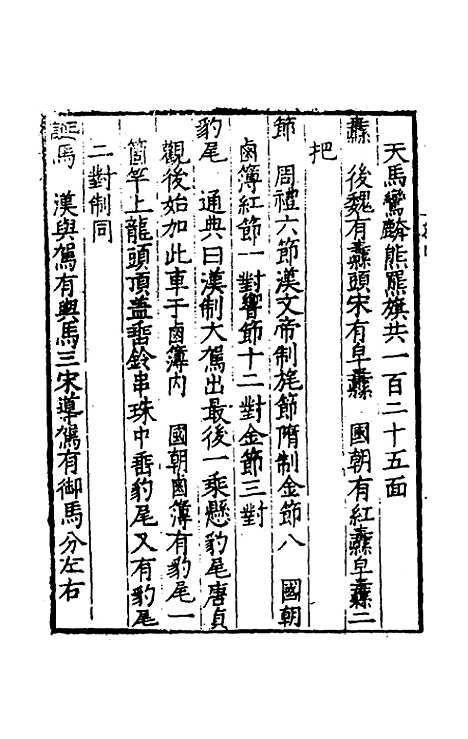 天馬鸞麟熊羆旗共一百二十五面
纛　後魏有纛頭宋有皁纛　國朝有紅纛皁纛二
把
節　周禮六節漢文帝制旄節隋制金節八　國朝
鹵簿紅節一對響節十二對金節三對
豹尾　通典曰漢制大駕出最後一乘懸豹尾唐貞
觀後始加此車于鹵簿內　國朝鹵簿有豹尾一
箇竿上龍頭頂盖垂鈴串珠中垂豹尾又有豹尾
二對制同
誕馬　漢輿駕有輿馬三宋導駕有御馬分左右